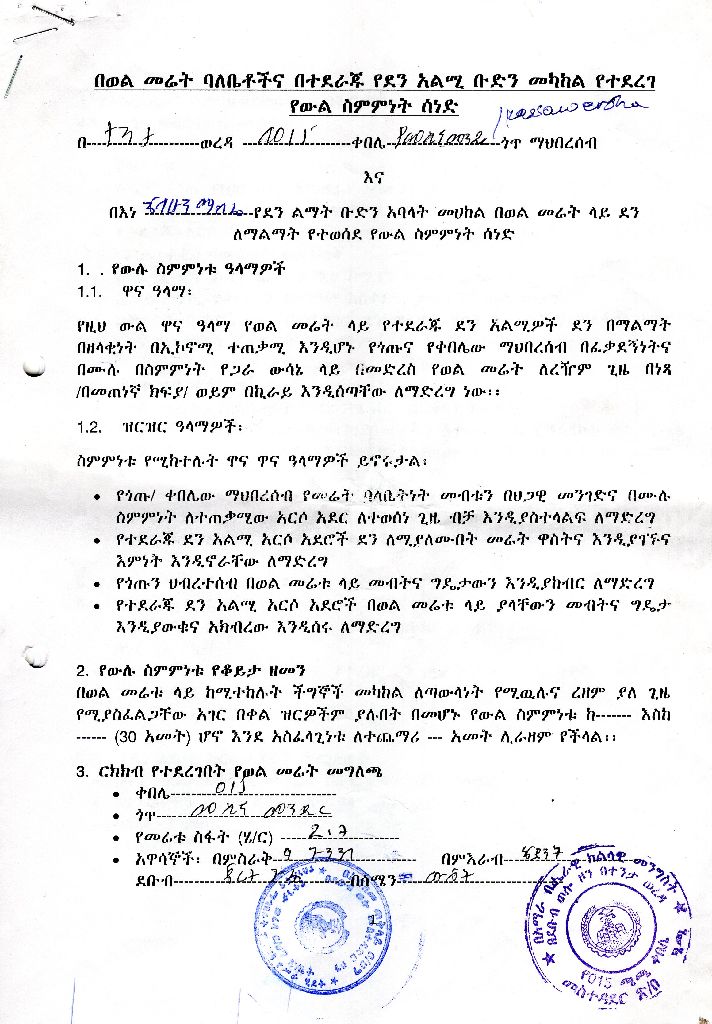 በወል መሬት ባለቤቶችና በተደራጁ የደን አልሚ ቡድን መካከል የተደረገ
የውል ስምምነት ሰነድ
በ---------ወረዳ 015 ቀበሌ ---------ጎጥ ማህበረሰብ
እና
በእነ ---------የደን ልማት ቡድን አባላት መሀከል በወል መሬት ላይ ደን
ለማልማት የተወሰደ የውል ስምምነት ሰነድ
1. . የውሉ ስምምነቱ ዓላማዎች
1.1. ዋና ዓላማ፡
የዚህ ውል ዋና ዓላማ የወል መሬት ላይ የተደራጁ ደን አልሚዎች ደን በማልማት
በዘላቂነት በኢኮኖሚ ተጠቃሚ እንዲሆኑ የጎጡና የቀበሌው ማህበረሰብ በፈቃደኝነትና
በሙሉ በስምምነት የጋራ ውሳኔ ላይ በመድረስ የወል መሬት ለረዥም ጊዜ በነጻ
/በመጠነኛ ክፍያ/ ወይም በኪራይ እንዲሰጣቸው ለማድረግ ነው፡፡
1.2. ዝርዝር ዓላማዎች፡
ስምምነቱ የሚከተሉት ዋና ዋና ዓላማዎች ይኖሩታል፡
• የጎጡ/ ቀበሌው ማህበረሰብ የመሬት ባላቤትነት መብቱን በህጋዊ መንገድና በሙሉ
ስምምነት ለተጠቃሚው አርሶ አደር ለተወሰነ ጊዜ ብቻ እንዲያስተላልፍ ለማድረግ
• የተደራጁ ደን አልሚ አርሶ አደሮች ደን ለሚያለሙበት መሬት ዋስትና እንዲያገኙና
እምነት እንዲኖራቸው ለማድረግ
• የጎጡን ህብረተሰብ በወል መሬቱ ላይ መብትና ግዴታውን እንዲያከብር ለማድረግ
• የተደራጁ ደን አልሚ አርሶ አደሮች በወል መሬቱ ላይ ያላቸውን መብትና ግዴታ
እንዲያውቁና አክብረው እንዲሰሩ ለማድረግ
2. የውሉ ስምምነቱ የቆይታ ዘመን
በወል መሬቱ ላይ ከሚተከሉት ችግኞች መካከል ለጣውላነት የሚዉሉና ረዘም ያለ ጊዜ
የሚያስፈልጋቸው አገር በቀል ዝርዎችም ያሉበት በመሆኑ የውል ስምምነቱ ከ------- እስከ
------ (30 አመት) ሆኖ እንደ አስፈላጊነቱ ለተጨማሪ --- አመት ሊራዘም የችላል፡፡
3. ርክክብ የተደረገበት የወል መሬት መግለጫ
• ቀበሌ---------015---------
• ጎጥ---------
• የመሬቱ ስፋት (ሄ/ር) ---------2.7---------
• አዋሳኞች፡ በምስራቅ--------- በምእራብ---------
ደቡብ--------- በሰሜን---------